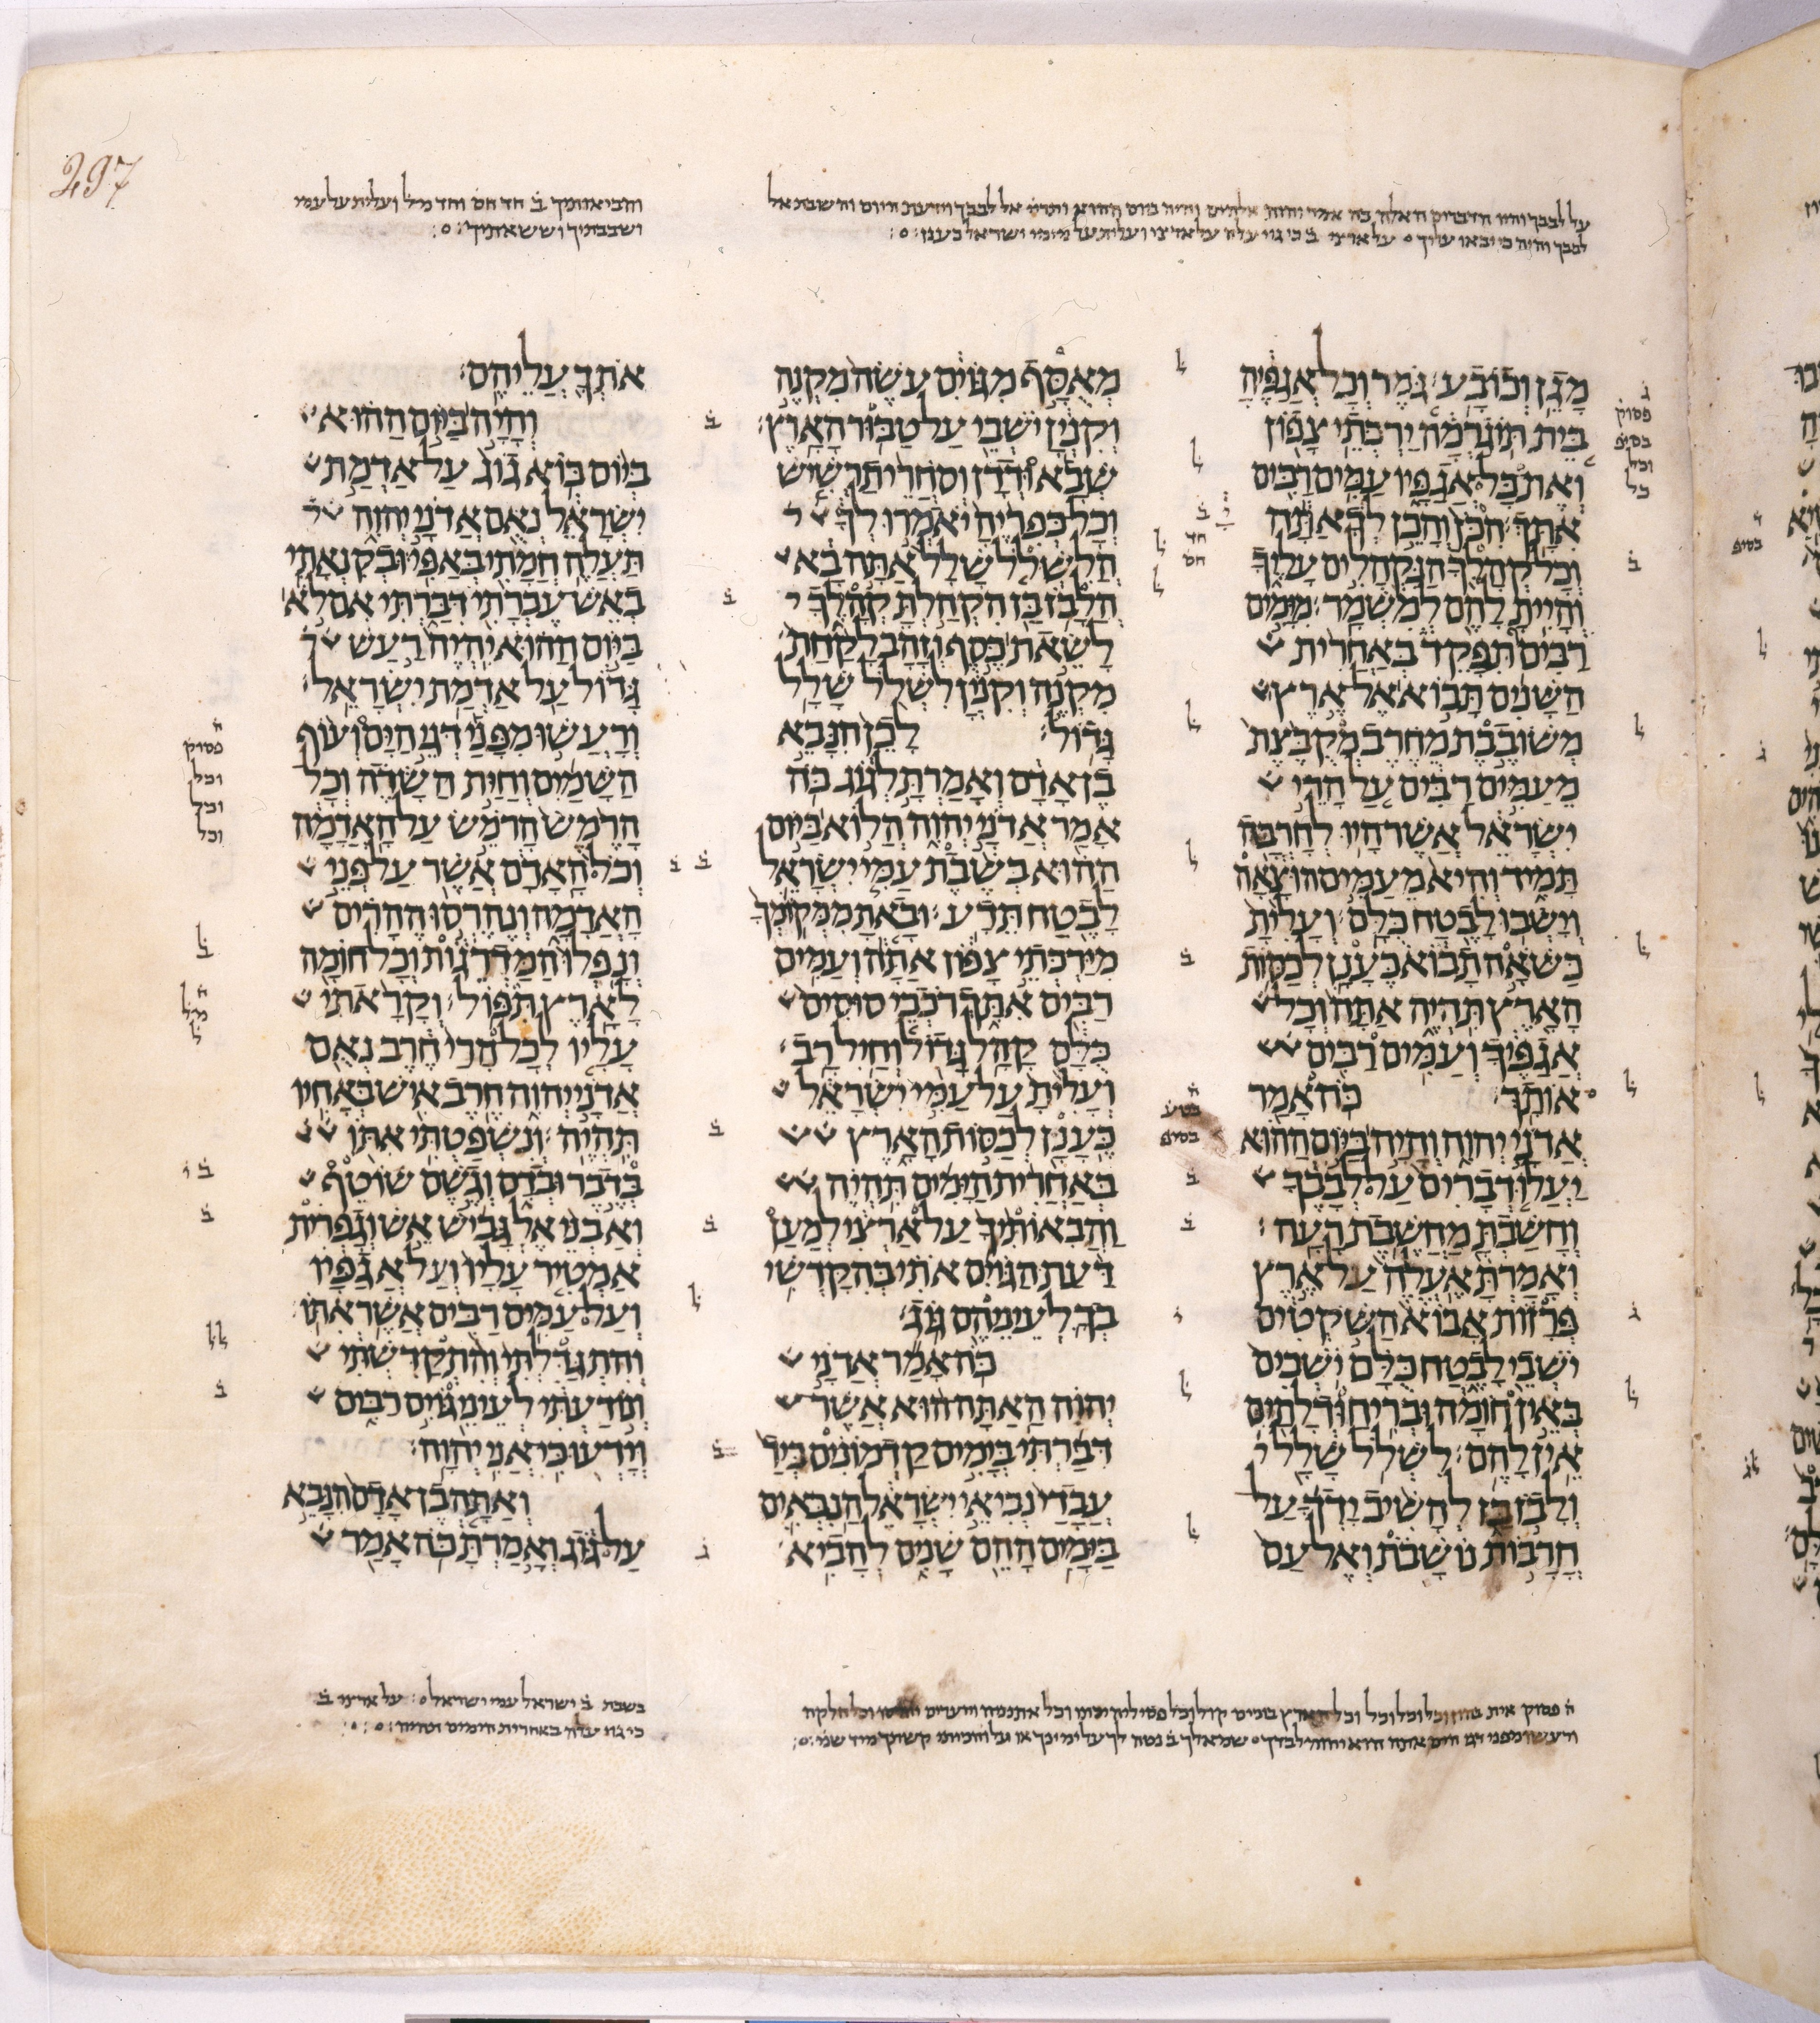 297
על לבבך והיו הדברים האלה כה אמר יהוה אלהים והיה ביום ההוא אל לבבך וידעת היום והשבת אל
לבבך והיה כי יבאו עליך על ארצי ב כי גוי עלה על ארצי ועלית על עמי ישראל כענן
והביאותיך ב חד חס וחד מל ועלית על עמי
ושבבתיך וששאתיך
מגן וכובע׃ גמר וכל אגפיה
בית תוגרמה ירכתי צפון
ואת כל אגפיו עמים רבים
אתך׃ הכן והכן לך אתה
וכל קהלך הנקהלים עליך
והיית להם למשמר׃ מימים
רבים תפקד באחרית
השנים תבוא אל ארץ
משובבת מחרב מקבצת
מעמים רבים על הרי
ישראל אשר היו לחרבה
תמיד והיא מעמים הוצאה
וישבו לבטח כלם׃ ועלית
כשאה תבוא כענן לכסות
הארץ תהיה אתה וכל
אגפיך ועמים רבים
אותך׃ כה אמר
אדני יהוה והיה ביום ההוא
יעלו דברים על לבבך
וחשבת מחשבת רעה׃
ואמרת אעלה על ארץ
פרזות אבוא השקטים
ישבי לבטח כלם ישבים
באין חומה ובריח ודלתים
אין להם׃ לשלל שלל
ולבז בז להשיב ידך על
חרבות נושבת ואל עם
מאסף מגוים עשה מקנה
וקנין ישבי על טבור הארץ׃
שבא ודדן וסחרי תרשיש
וכל כפריה יאמרו לך
הלשלל שלל אתה בא
הלבז בז הקהלת קהלך
לשאת כסף וזהב לקחת
מקנה וקנין לשלל שלל
גדול׃ לכן הנבא
בן אדם ואמרת לגוג כה
אמר אדני יהוה הלוא ביום
ההוא בשבת עמי ישראל
לבטח תדע׃ ובאת ממקומך
מירכתי צפון אתה ועמים
רבים אתך רכבי סוסים
כלם קהל גדול וחיל רב׃
ועלית על עמי ישראל
כענן לכסות הארץ
באחרית הימים תהיה
והבאותיך על ארצי למען
דעת הגוים אתי בהקדשי
בך לעיניהם גוג׃
כה אמר אדני
יהוה האתה הוא אשר
דברתי בימים קדמונים ביד
עבדי נביאי ישראל הנבאים
בימים ההם שנים להביא
אתך עליהם׃
והיה ביום ההוא
ביום בוא גוג על אדמת
ישראל נאם אדני יהוה
תעלה חמתי באפי׃ ובקנאתי
באש עברתי דברתי אם לא
ביום ההוא יהיה רעש
גדול על אדמת ישראל׃
ורעשו מפני דגי הים ועוף
השמים וחית השדה וכל
הרמש הרמש על האדמה
וכל האדם אשר על פני
האדמה ונהרסו ההרים
ונפלו המדרגות וכל חומה
לארץ תפול׃ וקראתי
עליו לכל הרי חרב נאם
אדני יהוה חרב איש באחיו
תהיה׃ ונשפטתי אתו
בדבר ובדם וגשם שוטף
ואבני אלגביש אש וגפרית
אמטיר עליו ועל אגפיו
ועל עמים רבים אשר אתו׃
והתגדלתי והתקדשתי
ונודעתי לעיני גוים רבים
וידעו כי אני יהוה׃
ואתה בן אדם הנבא
על גוג ואמרת כה אמר
בשבת ב ישראל עמי ישראל על ארצי ב
כי גוי עלה באחרית הימים תהיה